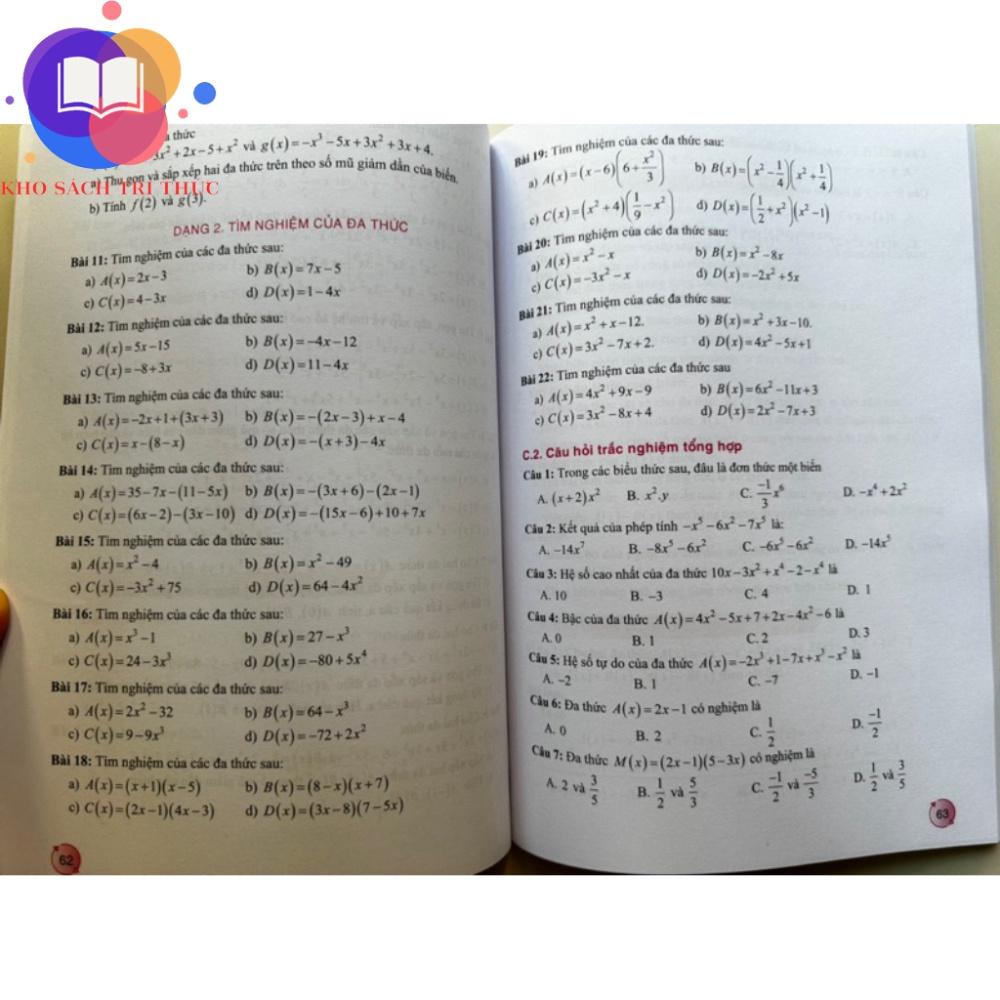 KHO SÁCH TRI THỨC
thức
3x² + 2x − 5 + x² và g(x) = −x³ − 5x + 3x² + 3x + 4.
a) Thu gọn và sắp xếp hai đa thức trên theo số mũ giảm dần của biến.
b) Tính f(2) và g(3).
DẠNG 2. TÌM NGHIỆM CỦA ĐA THỨC
Bài 11: Tìm nghiệm của các đa thức sau:
a) A(x) = 2x − 3 b) B(x) = 7x − 5
c) C(x) = 4 − 3x d) D(x) = 1 − 4x
Bài 12: Tìm nghiệm của các đa thức sau:
a) A(x) = 5x − 15 b) B(x) = −4x − 12
c) C(x) = −8 + 3x d) D(x) = 11 − 4x
Bài 13: Tìm nghiệm của các đa thức sau:
a) A(x) = −2x + 1 + (3x + 3) b) B(x) = −(2x − 3) + x − 4
c) C(x) = x − (8 − x) d) D(x) = −(x + 3) − 4x
Bài 14: Tìm nghiệm của các đa thức sau:
a) A(x) = 35 − 7x − (11 − 5x) b) B(x) = −(3x + 6) − (2x − 1)
c) C(x) = (6x − 2) − (3x − 10) d) D(x) = −(15x − 6) + 10 + 7x
Bài 15: Tìm nghiệm của các đa thức sau:
a) A(x) = x² − 4 b) B(x) = x² − 49
c) C(x) = −3x² + 75 d) D(x) = 64 − 4x²
Bài 16: Tìm nghiệm của các đa thức sau:
a) A(x) = x³ − 1 b) B(x) = 27 − x³
c) C(x) = 24 − 3x³ d) D(x) = −80 + 5x⁴
Bài 17: Tìm nghiệm của các đa thức sau:
a) A(x) = 2x² − 32 b) B(x) = 64 − x³
c) C(x) = 9 − 9x³ d) D(x) = −72 + 2x²
Bài 18: Tìm nghiệm của các đa thức sau:
a) A(x) = (x + 1)(x − 5) b) B(x) = (8 − x)(x + 7)
c) C(x) = (2x − 1)(4x − 3) d) D(x) = (3x − 8)(7 − 5x)
62
Bài 19: Tìm nghiệm của các đa thức sau:
a) A(x) = (x − 6)(6 + x²/3) b) B(x) = (x² − 1/4)(x² + 1/4)
c) C(x) = (x² + 4)(1/9 − x²) d) D(x) = (1/2 + x²)(x² − 1)
Bài 20: Tìm nghiệm của các đa thức sau:
a) A(x) = x² − x b) B(x) = x² − 8x
c) C(x) = −3x² − x d) D(x) = −2x² + 5x
Bài 21: Tìm nghiệm của các đa thức sau:
a) A(x) = x² + x − 12. b) B(x) = x² + 3x − 10.
c) C(x) = 3x² − 7x + 2. d) D(x) = 4x² − 5x + 1
Bài 22: Tìm nghiệm của các đa thức sau
a) A(x) = 4x² + 9x − 9 b) B(x) = 6x² − 11x + 3
c) C(x) = 3x² − 8x + 4 d) D(x) = 2x² − 7x + 3
C.2. Câu hỏi trắc nghiệm tổng hợp
Câu 1: Trong các biểu thức sau, đâu là đơn thức một biến
A. (x + 2)x² B. x².y C. −1/3 x⁶ D. −x⁴ + 2x²
Câu 2: Kết quả của phép tính −x⁵ − 6x² − 7x⁵ là:
A. −14x⁷ B. −8x⁵ − 6x² C. −6x⁵ − 6x² D. −14x⁵
Câu 3: Hệ số cao nhất của đa thức 10x − 3x² + x⁴ − 2 − x⁴ là
A. 10 B. −3 C. 4 D. 1
Câu 4: Bậc của đa thức A(x) = 4x² − 5x + 7 + 2x − 4x² − 6 là
A. 0 B. 1 C. 2 D. 3
Câu 5: Hệ số tự do của đa thức A(x) = −2x³ + 1 − 7x + x³ − x² là
A. −2 B. 1 C. −7 D. −1
Câu 6: Đa thức A(x) = 2x − 1 có nghiệm là
A. 0 B. 2 C. 1/2 D. −1/2
Câu 7: Đa thức M(x) = (2x − 1)(5 − 3x) có nghiệm là
A. 2 và 3/5 B. 1/2 và 5/3 C. −1/2 và −5/3 D. 1/2 và 3/5
63